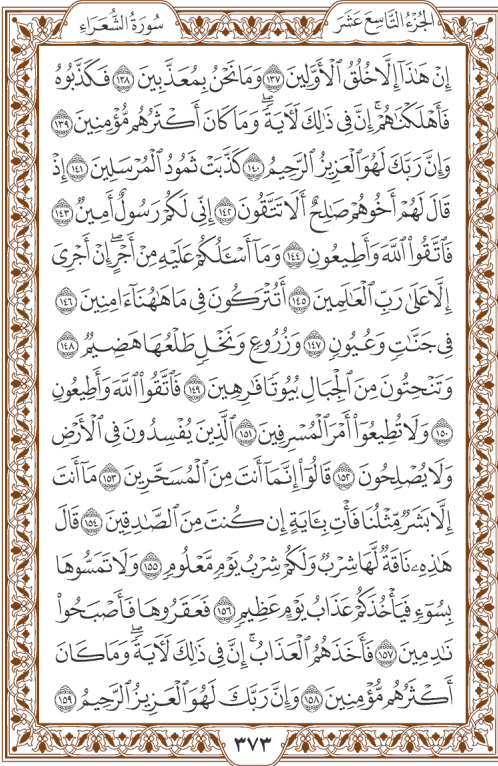 الجُزْءُ التَّاسِعَ عَشَرَ
سُورَةُ الشُّعَرَاءِ
إِنْ هَٰذَآ إِلَّا خُلُقُ ٱلْأَوَّلِينَ ١٣٧ وَمَا نَحْنُ بِمُعَذَّبِينَ ١٣٨ فَكَذَّبُوهُ
فَأَهْلَكْنَٰهُمْ ۚ إِنَّ فِى ذَٰلِكَ لَـَٔايَةً ۖ وَمَا كَانَ أَكْثَرُهُم مُّؤْمِنِينَ ١٣٩
وَإِنَّ رَبَّكَ لَهُوَ ٱلْعَزِيزُ ٱلرَّحِيمُ ١٤٠ كَذَّبَتْ ثَمُودُ ٱلْمُرْسَلِينَ ١٤١ إِذْ
قَالَ لَهُمْ أَخُوهُمْ صَٰلِحٌ أَلَا تَتَّقُونَ ١٤٢ إِنِّى لَكُمْ رَسُولٌ أَمِينٌ ١٤٣
فَٱتَّقُوا۟ ٱللَّهَ وَأَطِيعُونِ ١٤٤ وَمَآ أَسْـَٔلُكُمْ عَلَيْهِ مِنْ أَجْرٍ ۖ إِنْ أَجْرِىَ
إِلَّا عَلَىٰ رَبِّ ٱلْعَٰلَمِينَ ١٤٥ أَتُتْرَكُونَ فِى مَا هَٰهُنَآ ءَامِنِينَ ١٤٦
فِى جَنَّٰتٍ وَعُيُونٍ ١٤٧ وَزُرُوعٍ وَنَخْلٍ طَلْعُهَا هَضِيمٌ ١٤٨
وَتَنْحِتُونَ مِنَ ٱلْجِبَالِ بُيُوتًا فَٰرِهِينَ ١٤٩ فَٱتَّقُوا۟ ٱللَّهَ وَأَطِيعُونِ
١٥٠ وَلَا تُطِيعُوٓا۟ أَمْرَ ٱلْمُسْرِفِينَ ١٥١ ٱلَّذِينَ يُفْسِدُونَ فِى ٱلْأَرْضِ
وَلَا يُصْلِحُونَ ١٥٢ قَالُوٓا۟ إِنَّمَآ أَنتَ مِنَ ٱلْمُسَحَّرِينَ ١٥٣ مَآ أَنتَ
إِلَّا بَشَرٌ مِّثْلُنَا فَأْتِ بِـَٔايَةٍ إِن كُنتَ مِنَ ٱلصَّٰدِقِينَ ١٥٤ قَالَ
هَٰذِهِۦ نَاقَةٌ لَّهَا شِرْبٌ وَلَكُمْ شِرْبُ يَوْمٍ مَّعْلُومٍ ١٥٥ وَلَا تَمَسُّوهَا
بِسُوٓءٍ فَيَأْخُذَكُمْ عَذَابُ يَوْمٍ عَظِيمٍ ١٥٦ فَعَقَرُوهَا فَأَصْبَحُوا۟
نَٰدِمِينَ ١٥٧ فَأَخَذَهُمُ ٱلْعَذَابُ ۗ إِنَّ فِى ذَٰلِكَ لَـَٔايَةً ۖ وَمَا كَانَ
أَكْثَرُهُم مُّؤْمِنِينَ ١٥٨ وَإِنَّ رَبَّكَ لَهُوَ ٱلْعَزِيزُ ٱلرَّحِيمُ ١٥٩
٣٧٣